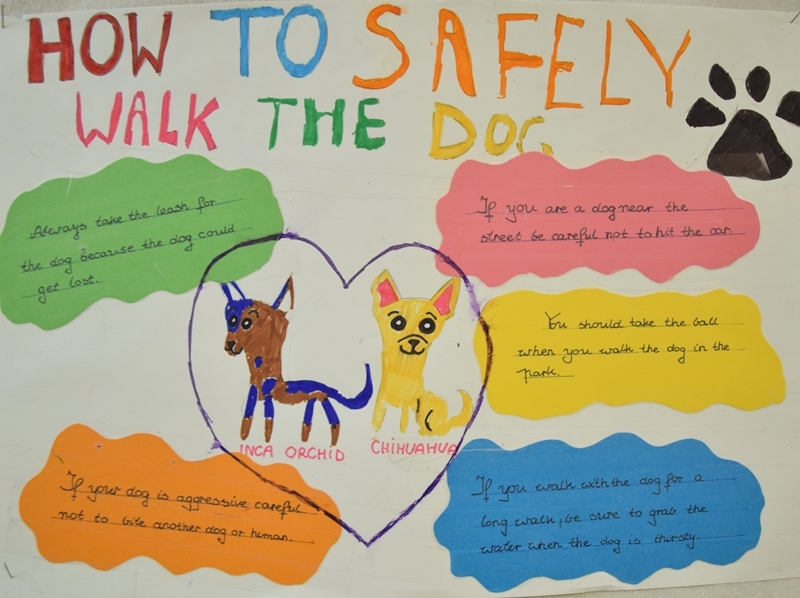 HOW TO SAFELY
WALK THE DOG
Always take the leash for
the dog because the dog could
get lost.
If you are a dog near the
street be careful not to hit the car.
You should take the ball
when you walk the dog in the
park.
INCA ORCHID
CHIHUAHUA
If your dog is aggressive careful
not to bite another dog or human.
If you walk with the dog for a
long walk, be sure to grab the
water when the dog is thirsty.